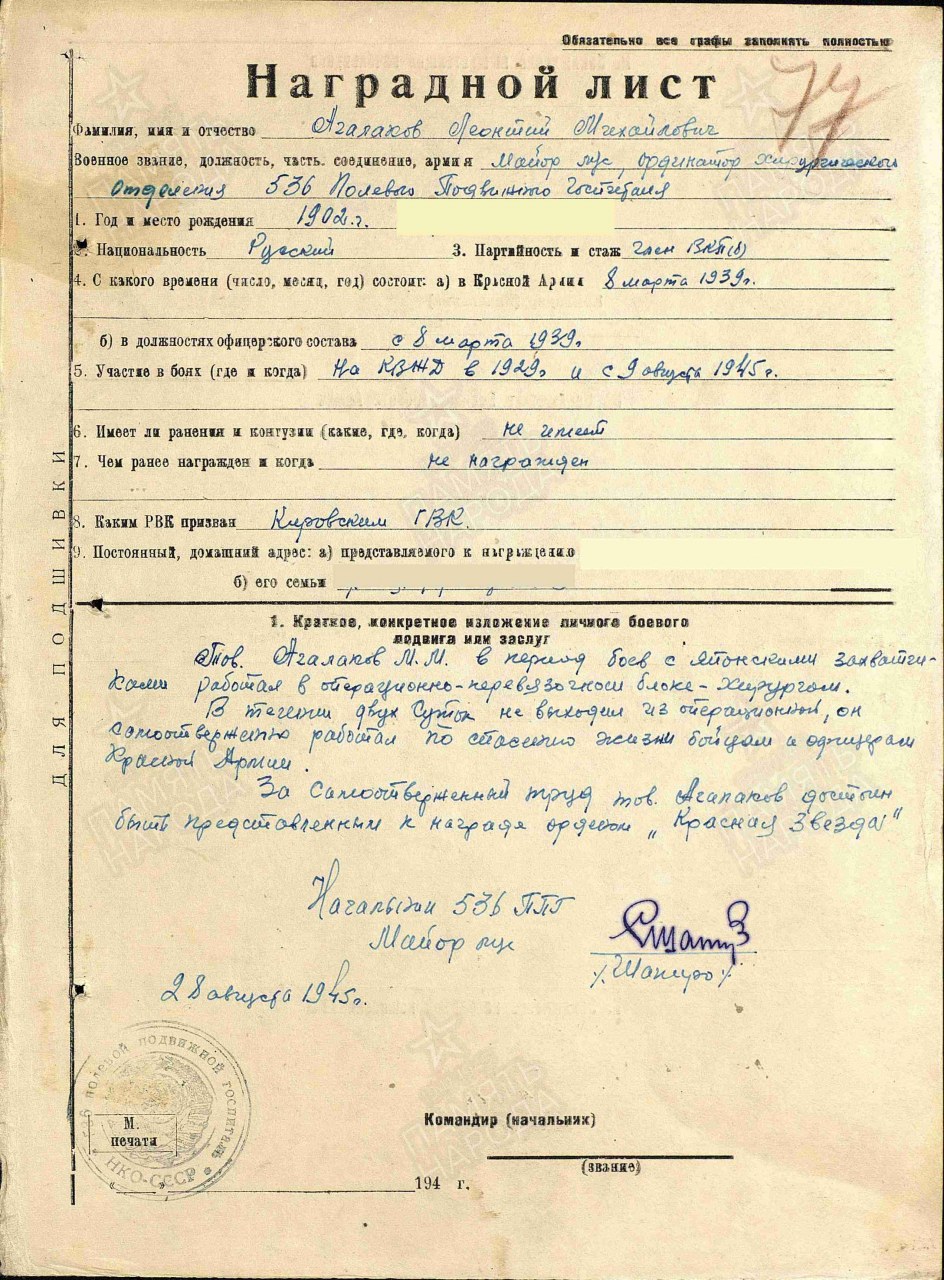 Обязательно все графы заполнять полностью
77
Наградной лист
Фамилия, имя и отчество Агалаков Леонтий Михайлович
Военное звание, должность, часть. соединение, армия Майор м/с, ординатор хирургического
Отделения 536 Полевого Подвижного Госпиталя
1. Год и место рождения 1902 г.
2. Национальность Русский 3. Партийность и стаж член ВКП(б)
4. С какого времени (число, месяц, год) состоит: а) в Красной Армии 8 марта 1939 г.
б) в должностях офицерского состава с 8 марта 1939 г.
5. Участие в боях (где и когда) На КВЖД в 1929 г и с 9 августа 1945 г.
6. Имеет ли ранения и контузии (какие, где, когда) не имеет
7. Чем ранее награжден и когда не награжден
8. Каким РВК призван Кировским ГВК.
9. Постоянный, домашний адрес: а) представляемого к награждению
б) его семьи
ДЛЯ ПОДШИВКИ
1. Краткое, конкретное изложение личного боевого
подвига или заслуг
Тов. Агалаков М.М. в период боев с японскими захватчи-
ками работал в операционно-перевязочном блоке - Хирургом.
В течении двух суток не выходил из операционной, он
самоотвержено работал по спасению жизни бойцам и офицерам
Красной Армии.
За самоотверженный труд тов. Агалаков достоин
быть представленным к награде орденом „Красная Звезда"
Начальник 536 ППГ
Майор м/с
/Шапиро/
28 августа 1945 г.
536 ПОЛЕВОЙ ПОДВИЖНОЙ ГОСПИТАЛЬ
НКО-СССР
М.
печати
Командир (начальник)
(звание)
"" 194 г.
ПАМЯТЬ
НАРОДА